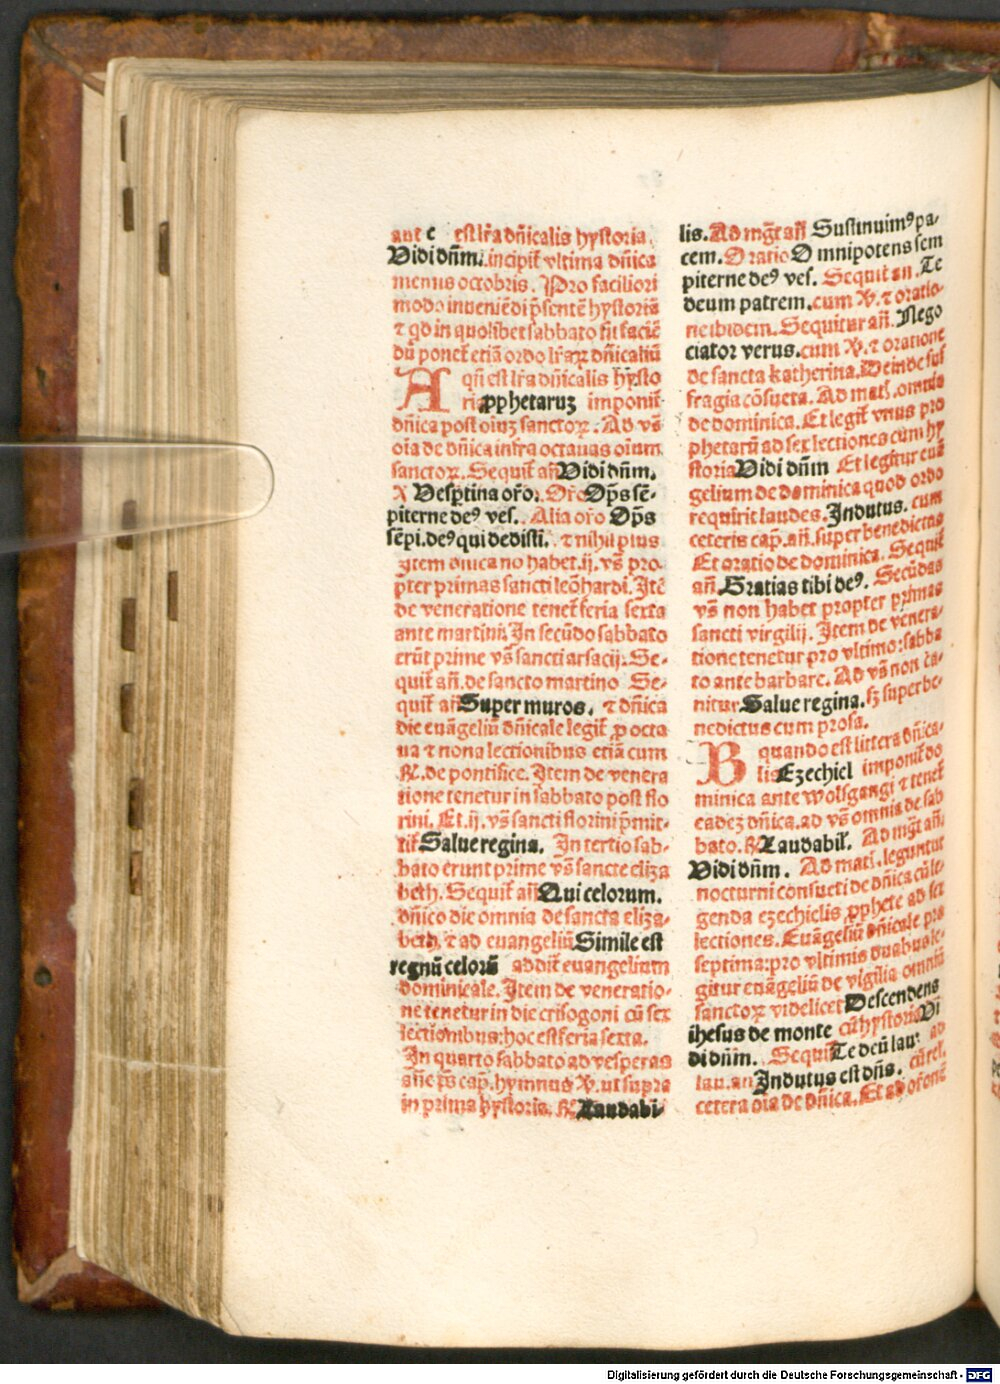 aut e est lr̄a dn̄icalis hystoria
Vidi dn̄m. incipit̄ vltima dn̄ica
mensis octobris. Pro faciliori
modo inueniēdi p̄sentē hystoriā
⁊ qd in quolibet sabbato sit faciē
dū ponet̄ etiā ordo lr̄aꝝ dn̄icaliū
A qn̄ est lr̄a dn̄icalis hysto
ria ꝓphetaruꝫ imponit̄
dn̄ica post oīuꝫ sanctoꝝ. Ad vs̄
oīa de dn̄ica infra octauas oīum
sanctoꝝ. Sequit̄ an̄ Vidi dn̄m.
℣ Vesp̱tina or̄o. Or̄o Op̄s sē-
piterne deꝰ ves. Alia or̄o Op̄s
sēpi. deꝰ qui dedisti. ⁊ nihil plus
Item dn̄ica no habet .ij. vs̄ pro-
pter primas sancti leōhardi. Itē
de veneratione tenet̄ feria sexta
ante martini. In secūdo sabbato
erūt prime vs̄ sancti arsacij. Se-
quit̄ an̄. de sancto martino Se-
quit̄ an̄ Super muros. ⁊ dn̄ica
die euāgeliū dn̄icale legit̄ ꝓ octa
ua ⁊ nona lectionibus etiā cum
℟. de pontifice. Item de venera
tione tenetur in sabbato post flo
rini. Et .ij. vs̄ sancti florini p̄mit-
tit̄ Salue regina. In tertio sab-
bato erunt prime vs̄ sancte eliza
beth. Sequit̄ an̄ Qui celorum.
dn̄ico die omnia de sancta eliza-
beth, ⁊ ad euangeliū Simile est
regnū celorū addit̄ euangelium
dominicale. Item de veneratio-
ne tenetur in die crisogoni cū sex
lectionibus: hoc est feria sexta.
In quarto sabbato ad vesperas
an̄e p̄s cap. hymnus ℣. ut supra
in prima hystoria. ℟ Laudabi-
lis. Ad mg̅t an̄ Sustinuimꝰ pa-
cem. Oratio Omnipotens sem
piterne deꝰ ves. Sequit̄ an. Te
deum patrem. cum ℣. ⁊ oratio-
ne ibidem. Sequitur an̄. Nego
ciator verus. cum ℣. ⁊ oratione
de sancta katherina. Deinde suf
fragia cōsueta. Ad mat̄. omnia
de dominica. Et legit̄ vnus pro
phetarū ad sex lectiones cum hy
storia Vidi dn̄m Et legitur euā
gelium de dominica quod ordo
requirit laudes. Indutus. cum
ceteris cap. an̄. super benedictus
Et oratio de dominica. Sequit̄
an̄. Gratias tibi deꝰ. Secūdas
vs̄ non habet propter primas
sancti virgilij. Item de venera-
tione tenetur pro vltimo: sabba
to ante barbare. Ad vs̄ non ca-
nitur Salue regina. sꝫ super be-
nedictus cum prosa.
B quando est littera dn̄ica-
lis Ezechiel imponit̄ do
minica ante wolfgangi ⁊ tenet̄
eadeꝫ dn̄ica. ad vs̄ omnia de sab
bato. ℟ Laudabil̄. Ad mg̅t an̄.
Vidi dn̄m. Ad mat̄. leguntur
nocturni consueti de dn̄ica cū le-
genda ezechielis ꝓphete ad sex
lectiones. Euāgeliū dn̄icale pro
septima: pro vltimis duabus le-
gitur euāgeliū de vigilia omniū
sanctoꝝ videlicet Descendens
ihesus de monte cū hystoria Vi
di dn̄m. Sequit̄ Te deū lau. ad
lau. an Indutus est dn̄s. cū rel.
cetera oīa de dn̄ica. Et ad os̄ one
Digitalisierung gefördert durch die Deutsche Forschungsgemeinschaft - DFG